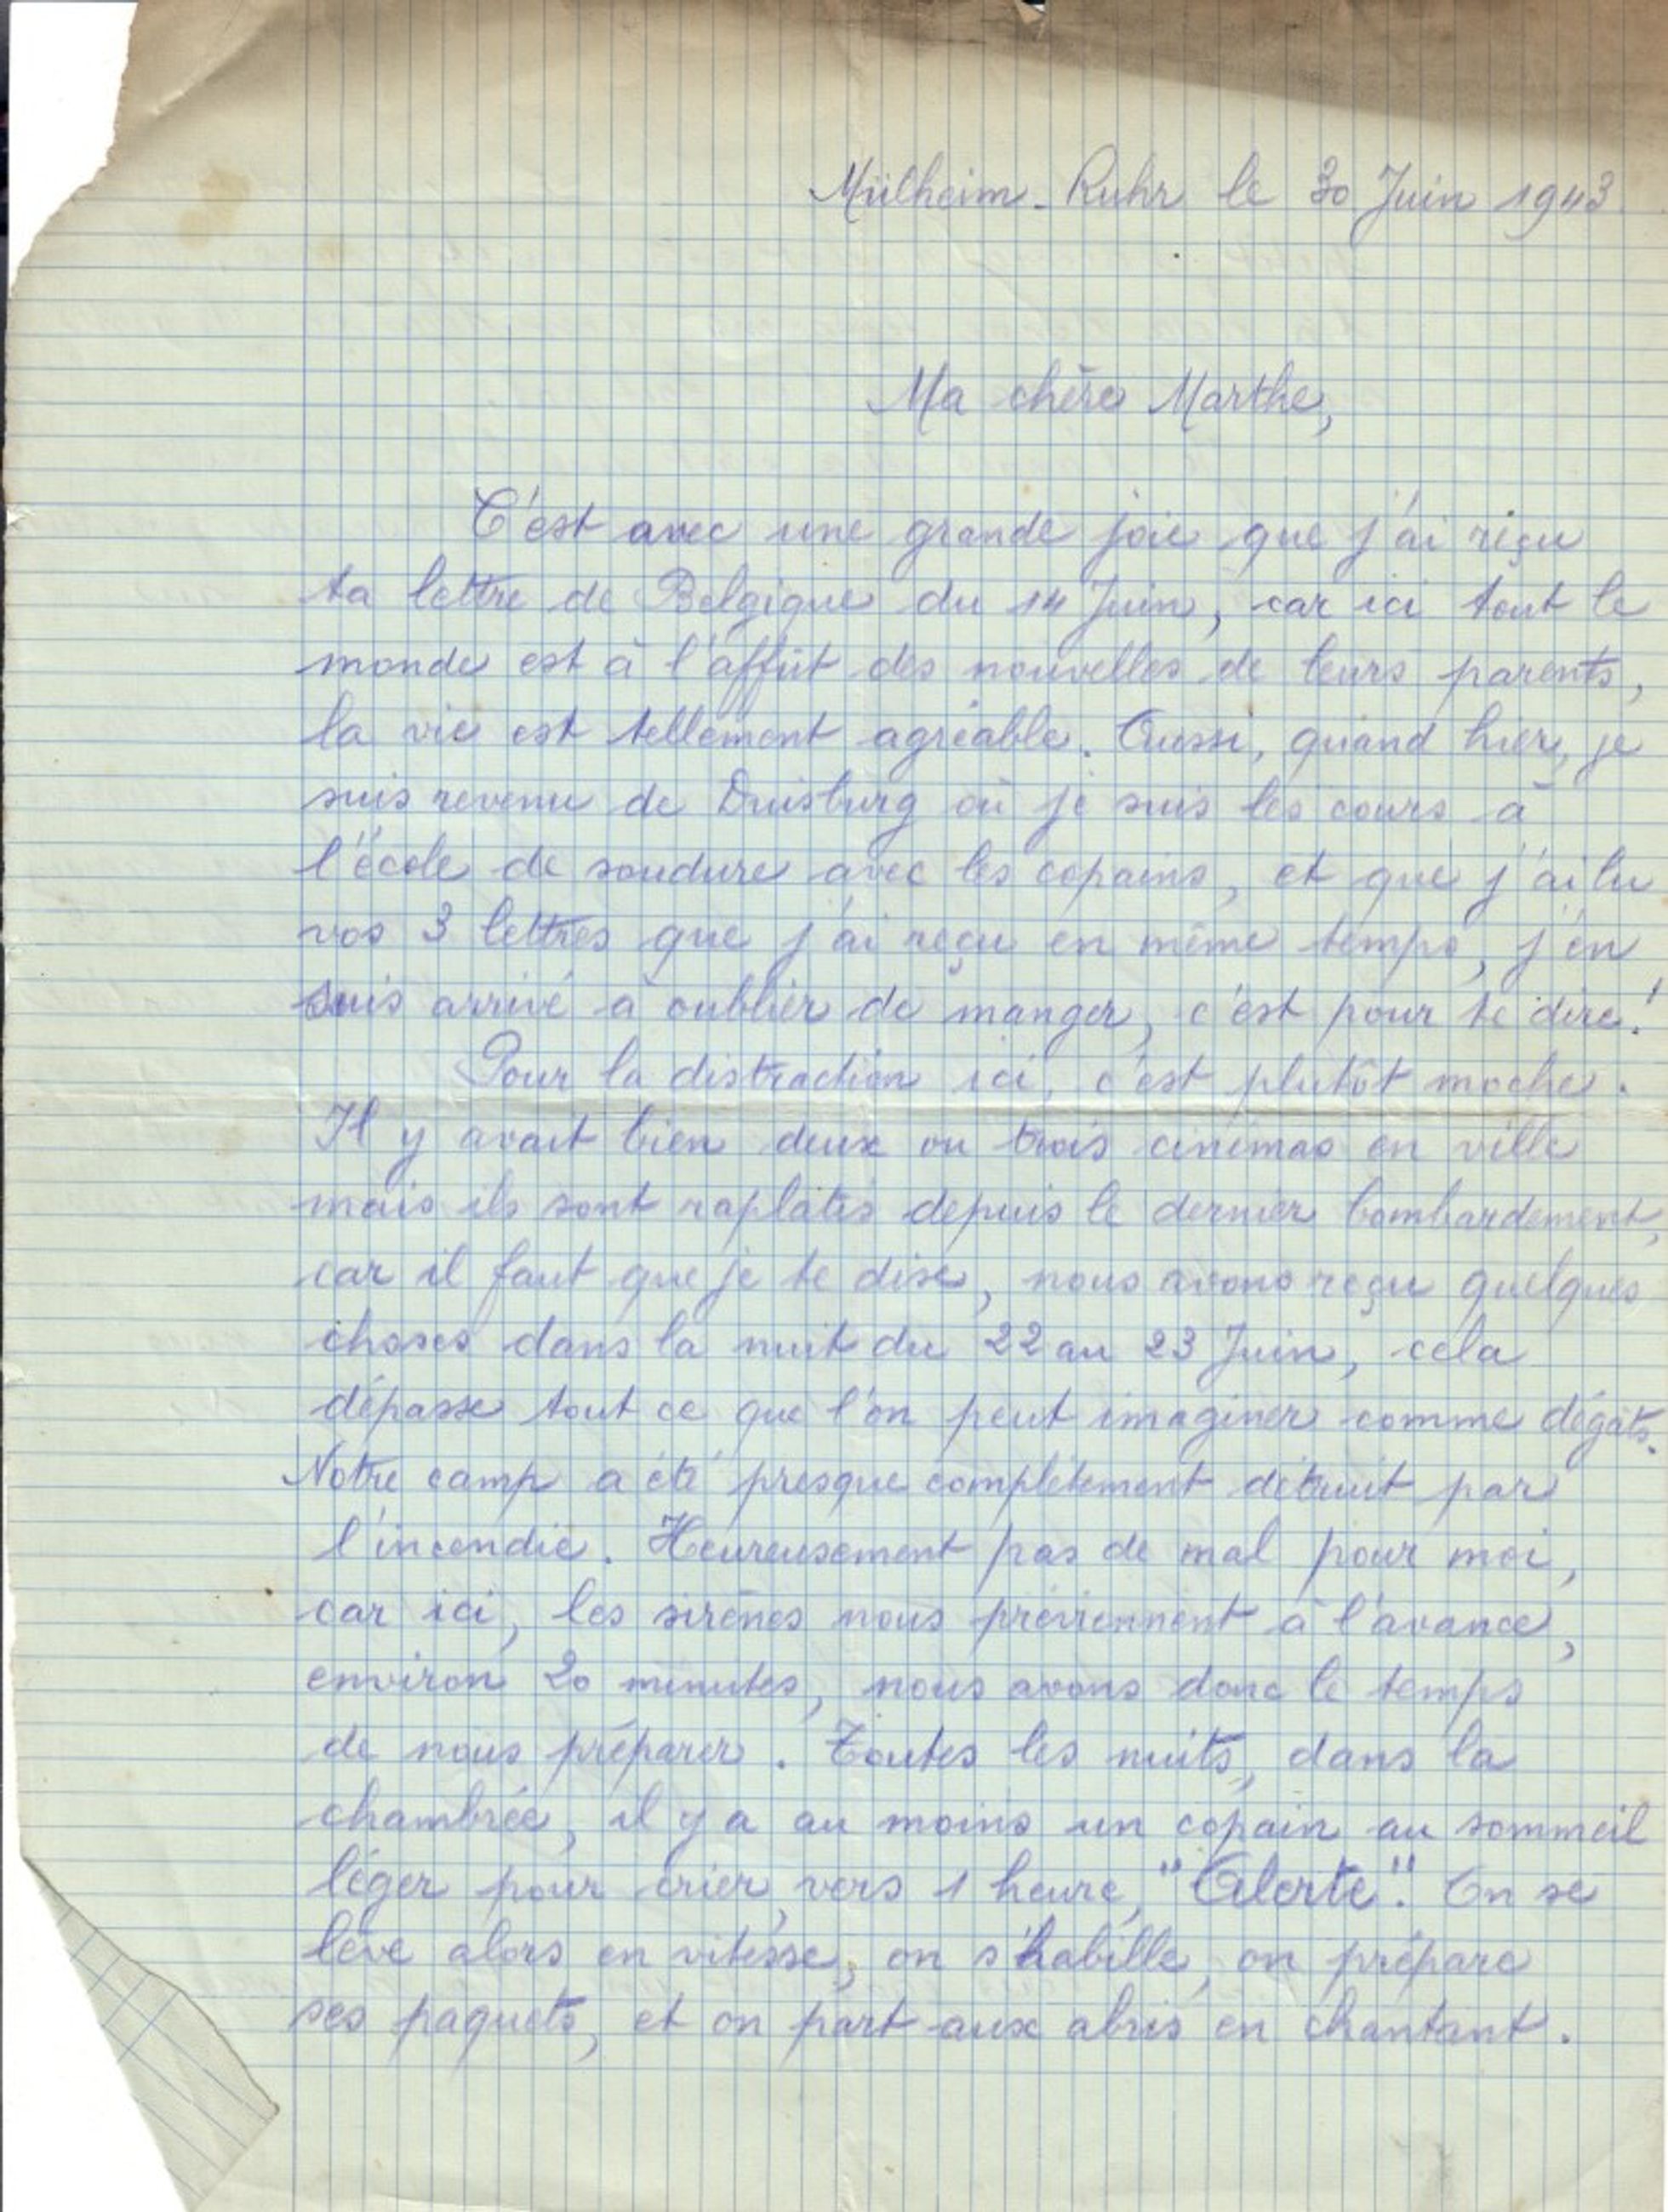 Mülheim-Ruhr le 30 Juin 1943
Ma chère Marthe,
C'est avec une grande joie que j'ai reçu
ta lettre de Belgique du 14 Juin, car ici tout le
monde est à l'affût des nouvelles de leurs parents,
la vie est tellement agréable. Aussi, quand hier, je
suis revenu de Duisburg où je suis les cours à
l'école de soudure avec les copains, et que j'ai lu
vos 3 lettres que j'ai reçu en même temps, j'en
suis arrivé à oublier de manger, c'est pour te dire!
Pour la distraction ici, c'est plutôt moche.
Il y avait bien deux ou trois cinémas en ville
mais ils sont raplatis depuis le dernier bombardement,
car il faut que je te dise, nous avons reçu quelques
choses dans la nuit du 22 au 23 Juin, cela
dépasse tout ce que l'on peut imaginer comme dégâts.
Notre camp a été presque complètement détruit par
l'incendie. Heureusement pas de mal pour moi,
car ici, les sirènes nous préviennent à l'avance,
environ 20 minutes, nous avons donc le temps
de nous préparer. Toutes les nuits, dans la
chambrée, il y a au moins un copain au sommeil
léger pour crier, vers 1 heure, "Alerte". On se
lève alors en vitesse, on s'habille, on prépare
ses paquets, et on part aux abris en chantant.